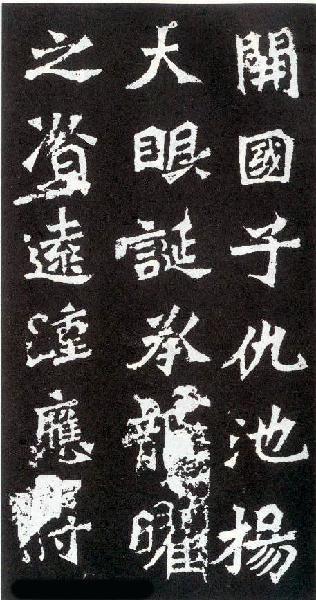 開國子仇池楊
大眼誕承龍曜
之資遠踵應符